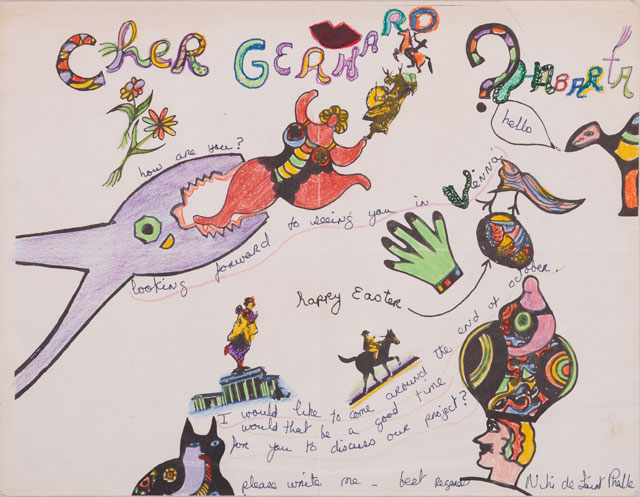 Cher GERHARD ?HABARTA
hello
how are you?
looking forward to seeing you in Vienna
happy Easter
I would like to come around the end of october.
would that be a good time
for you to discuss our project?
please write me - best regards
Niki de Saint Phalle